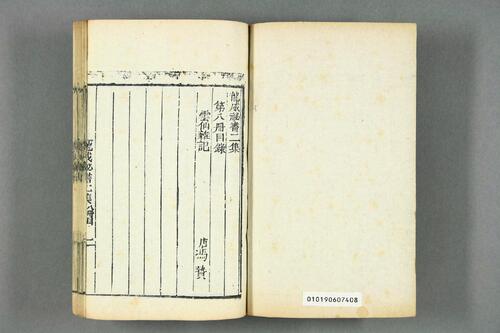 龍威秘書二集
第八冊目錄
雲仙雜記
唐馮贄
龍威秘書二集八冊目
010190607408